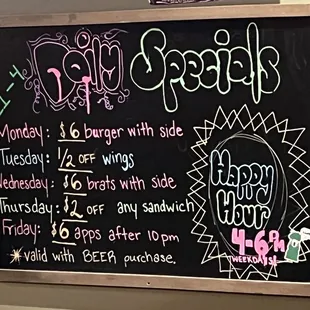 Daily Specials
1-4
Monday: $6 burger with side
Tuesday: 1/2 OFF wings
Wednesday: $6 brats with side
Thursday: $2 OFF any sandwich
Friday: $6 apps after 10pm
*valid with BEER purchase.
Happy
Hour
4-6PM
WEEKDAYS!